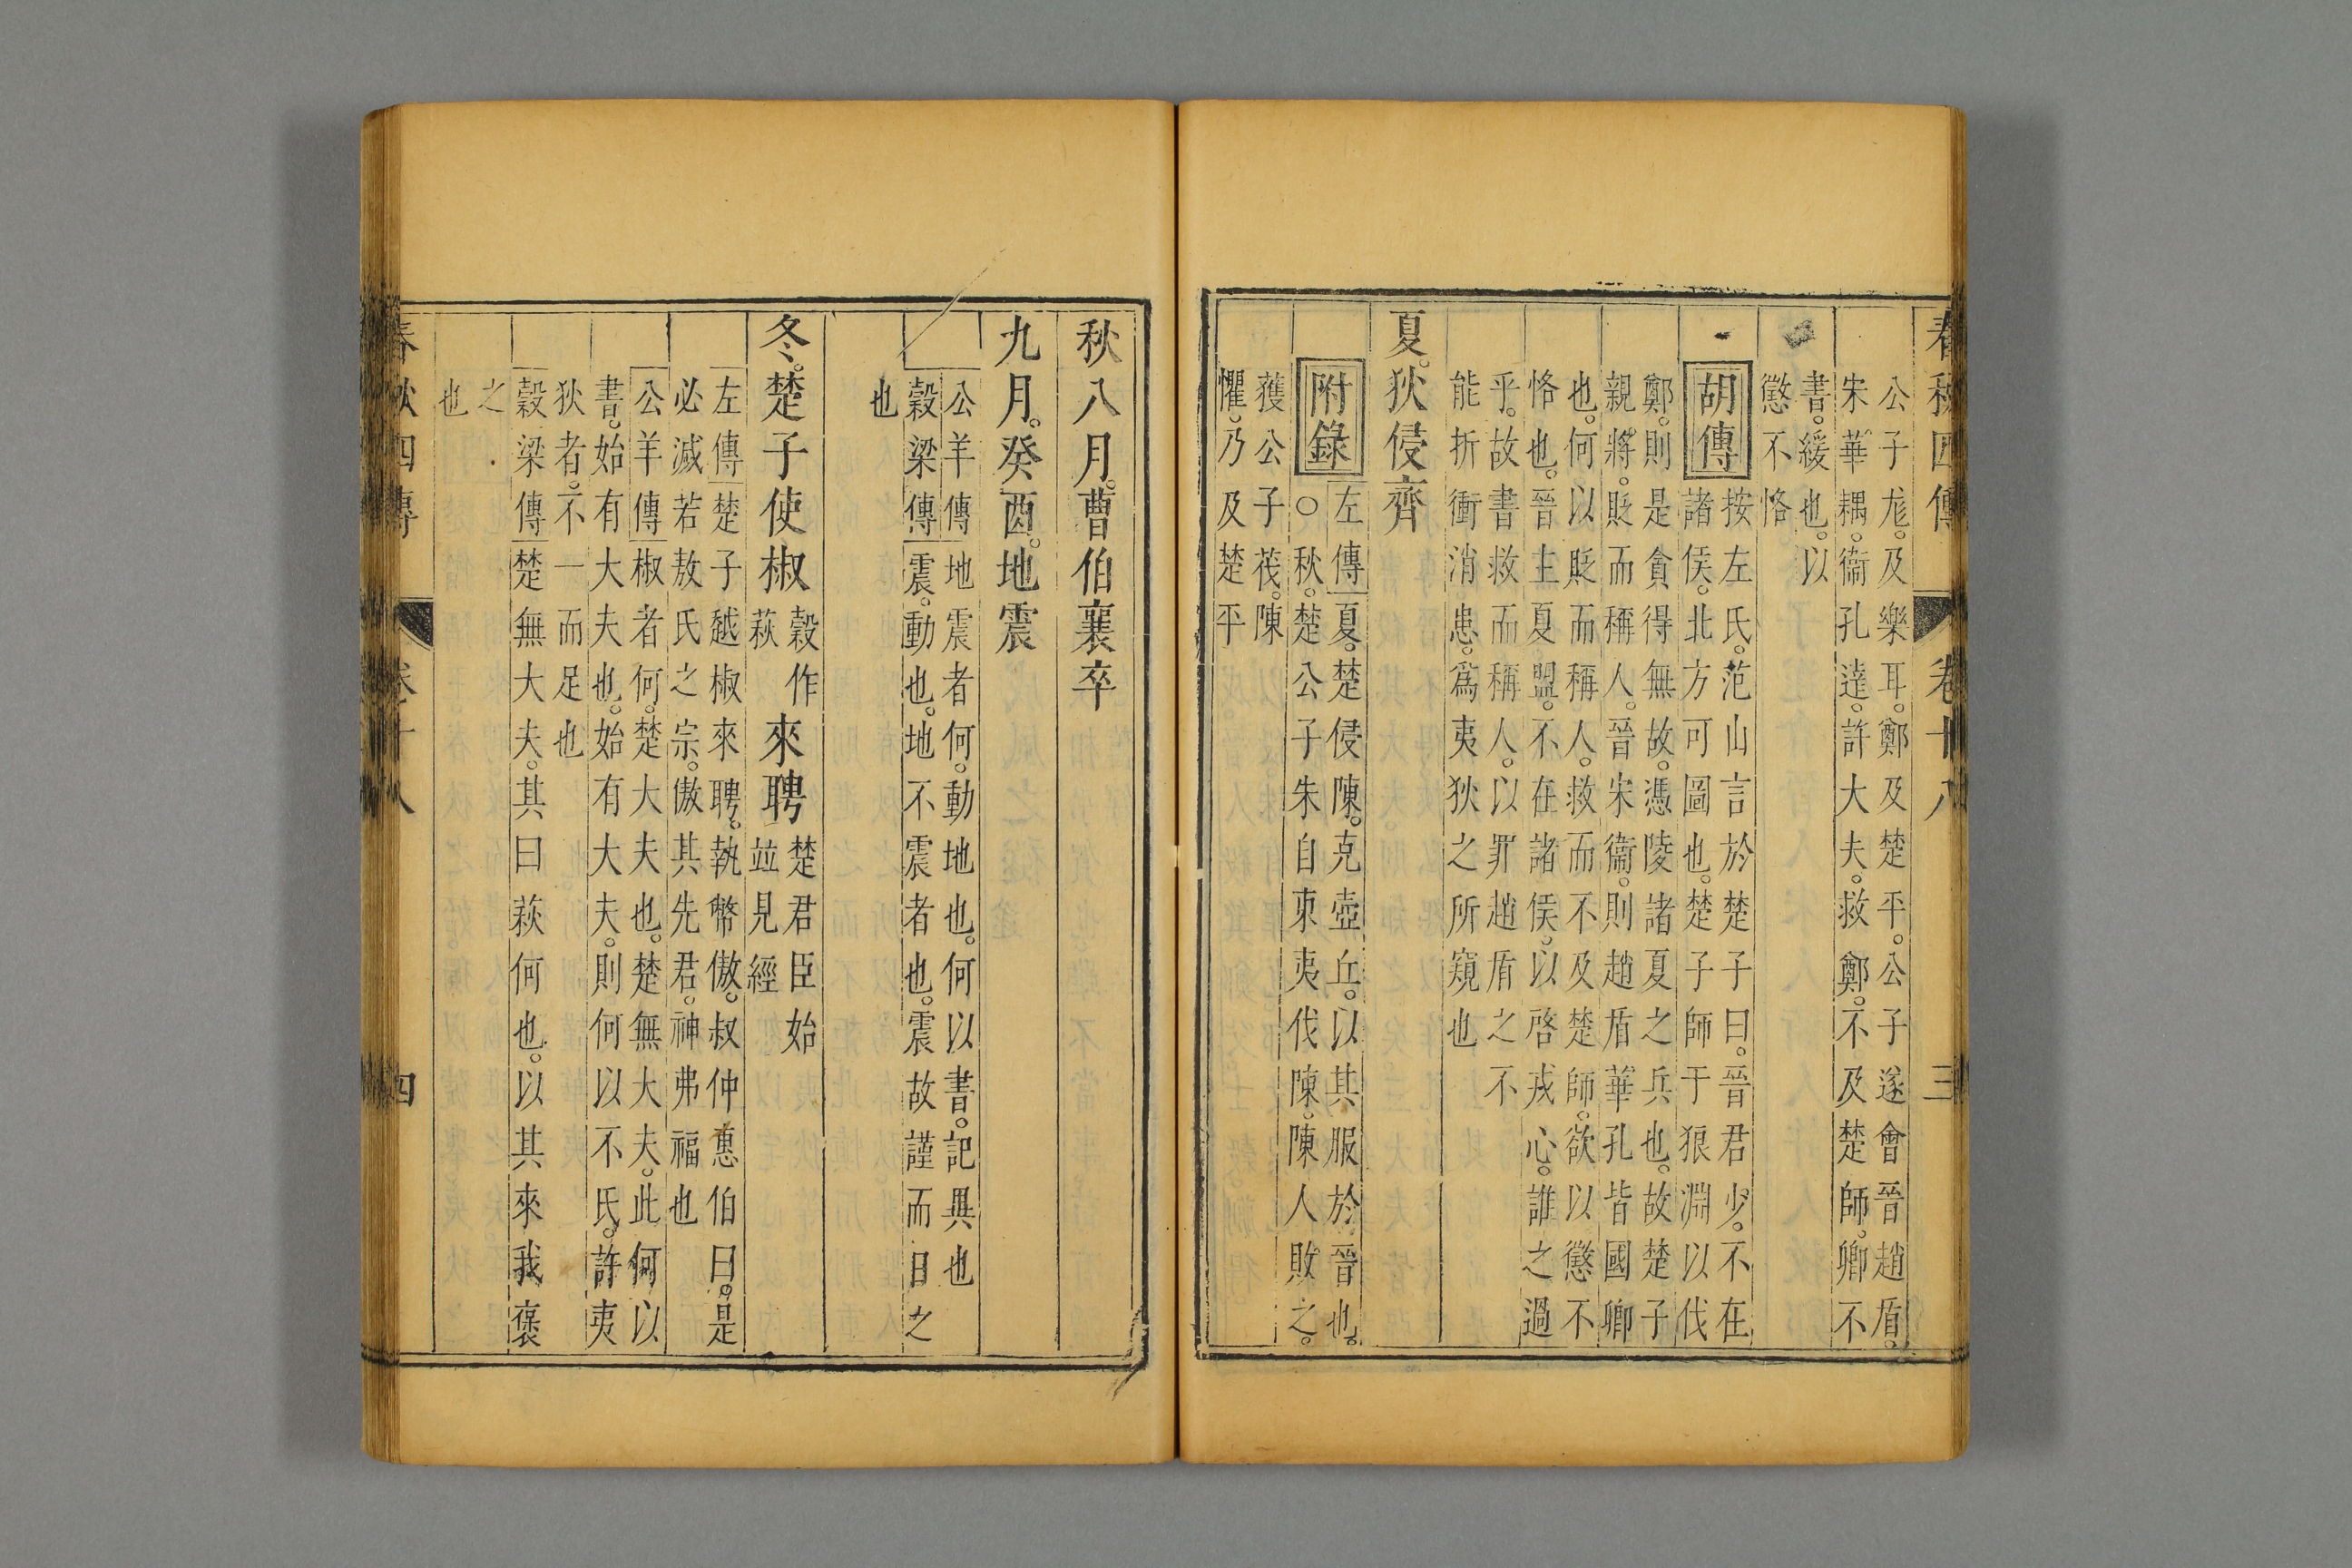 春秋四傳 卷十八 三
公子尨。及樂耳。鄭及楚平。公子遂會晉趙盾。
宋華耦。衞孔達。許大夫。救鄭。不及楚師。卿不
書。緩也。以
懲不恪
胡傳
按左氏。范山言於楚子曰。晉君少。不在
諸侯。北方可圖也。楚子師于狼淵以伐
鄭。則是貪得無故。憑陵諸夏之兵也。故楚子
親將。貶而稱人。晉宋衞。則趙盾華孔皆國卿
也。何以貶而稱人。救而不及楚師。欲以懲不
恪也。晉主夏盟。不在諸侯。以啓戎心。誰之過
乎。故書救而稱人。以罪趙盾之不
能折衝消患。爲夷狄之所窺也
夏。狄侵齊
附錄
左傳夏。楚侵陳。克壺丘。以其服於晉也。
○秋。楚公子朱自東夷伐陳。陳人敗之。
獲公子茷。陳
懼。乃及楚平
秋八月。曹伯襄卒
九月。癸酉。地震
公羊傳地震者何。動地也。何以書。記異也
穀梁傳震。動也。地不震者也。震故謹而日之
也
冬。楚子使椒穀作萩來聘楚君臣始並見經
左傳楚子越椒來聘。執幣傲。叔仲惠伯曰。是
必滅若敖氏之宗。傲其先君。神弗福也
公羊傳椒者何。楚大夫也。楚無大夫。此何以
書。始有大夫也。始有大夫。則何以不氏。許夷
狄者。不一而足也
穀梁傳楚無大夫。其曰萩何也。以其來我褒
之
也
春秋四傳 卷十八 四